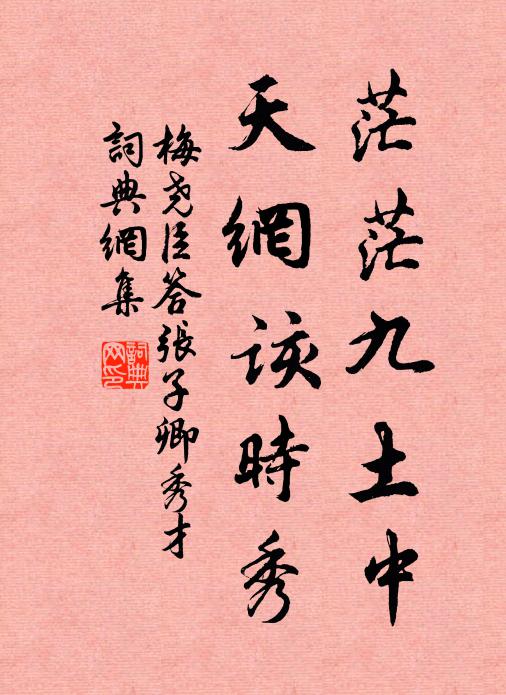 茫茫九土中
天網該時秀
梅堯臣答張子卿秀才
詞典網集
詞典網印